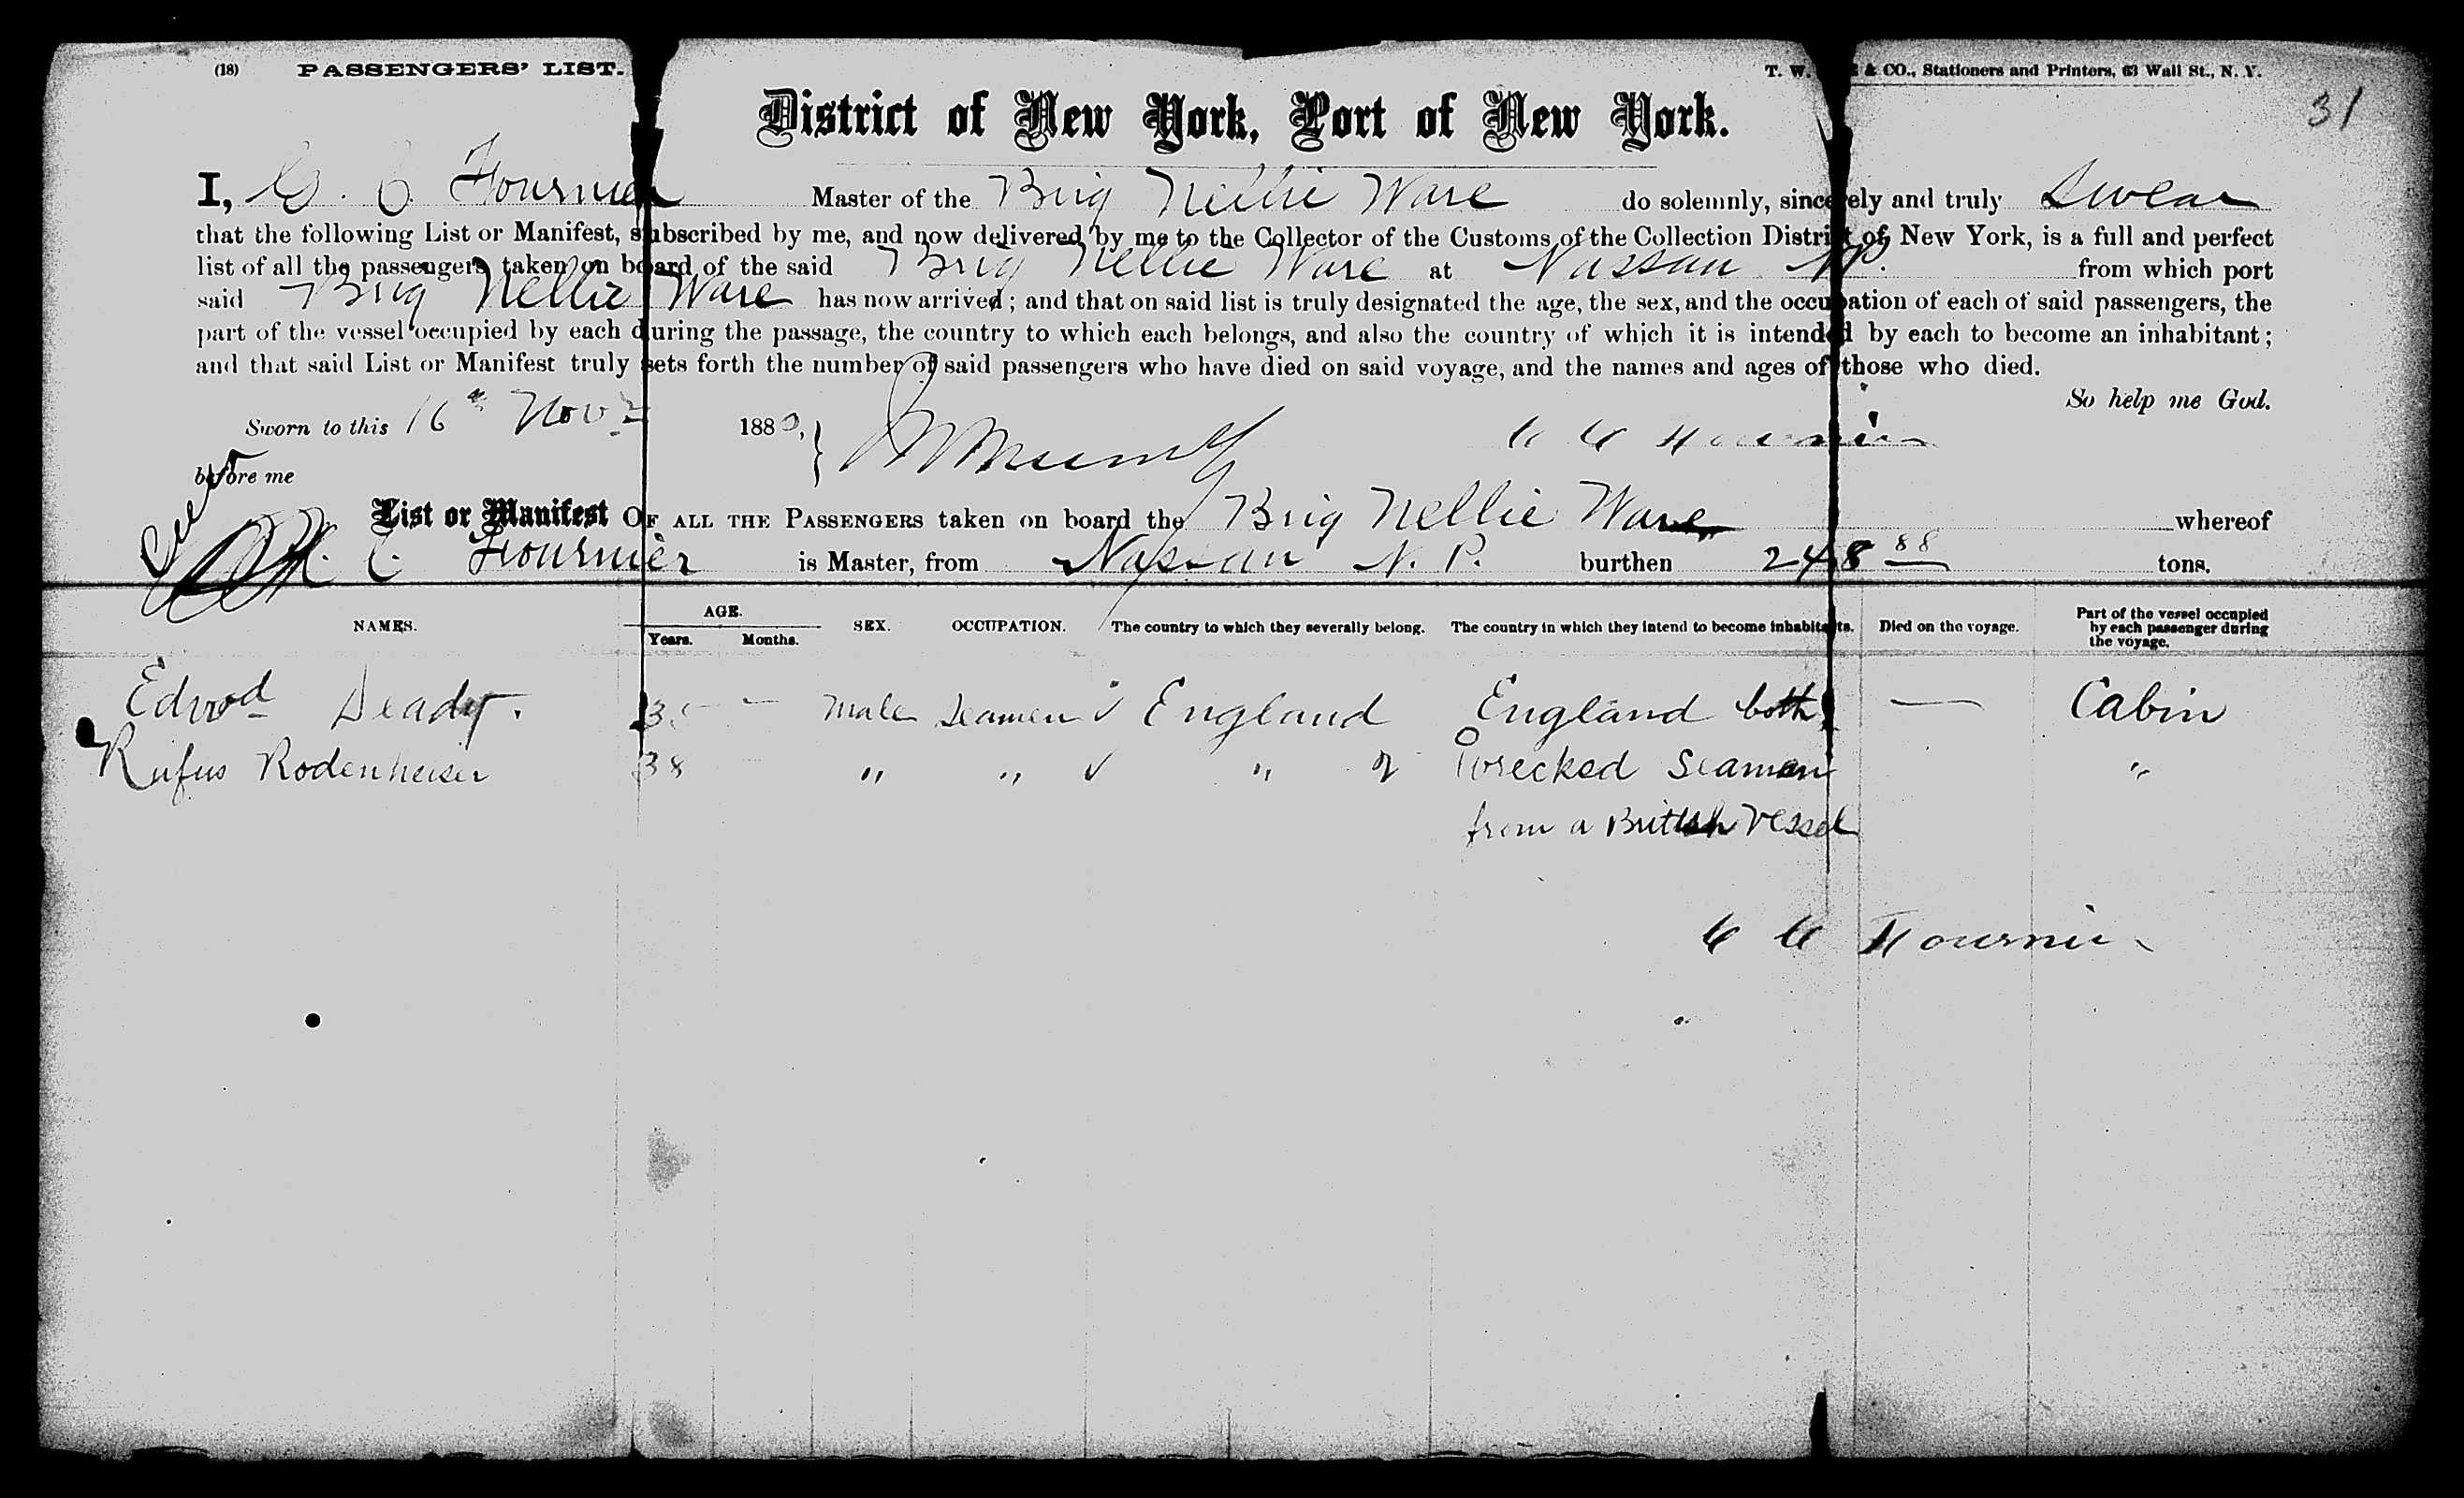 (18) PASSENGERS' LIST. T. W. & CO., Stationers and Printers, 63 Wall St., N. Y.
31
District of New York, Port of New York.
I, C. C. Fournier Master of the Brig Nellie Ware do solemnly, sincerely and truly Swear
that the following List or Manifest, subscribed by me, and now delivered by me to the Collector of the Customs of the Collection District of New York, is a full and perfect
list of all the passengers taken on board of the said Brig Nellie Ware at Nassau N.P. from which port
said Brig Nellie Ware has now arrived; and that on said list is truly designated the age, the sex, and the occupation of each of said passengers, the
part of the vessel occupied by each during the passage, the country to which each belongs, and also the country of which it is intended by each to become an inhabitant;
and that said List or Manifest truly sets forth the number of said passengers who have died on said voyage, and the names and ages of those who died.
So help me God.
Sworn to this 16th Nov 1880, C C Fournier
before me
List or Manifest OF ALL THE PASSENGERS taken on board the Brig Nellie Ware whereof
C. Fournier is Master, from Nassau N. P. burthen 248 88 tons.
NAMES. AGE. Years. Months. SEX. OCCUPATION. The country to which they severally belong. The country in which they intend to become inhabitants. Died on the voyage. Part of the vessel occupied by each passenger during the voyage.
Edwd Deady. 35 — Male Seamen ✓ England England both — Cabin
Rufus Rodenheiser 38 " " ✓ " of Wrecked Seamen "
from a British Vessel
C C Fournier